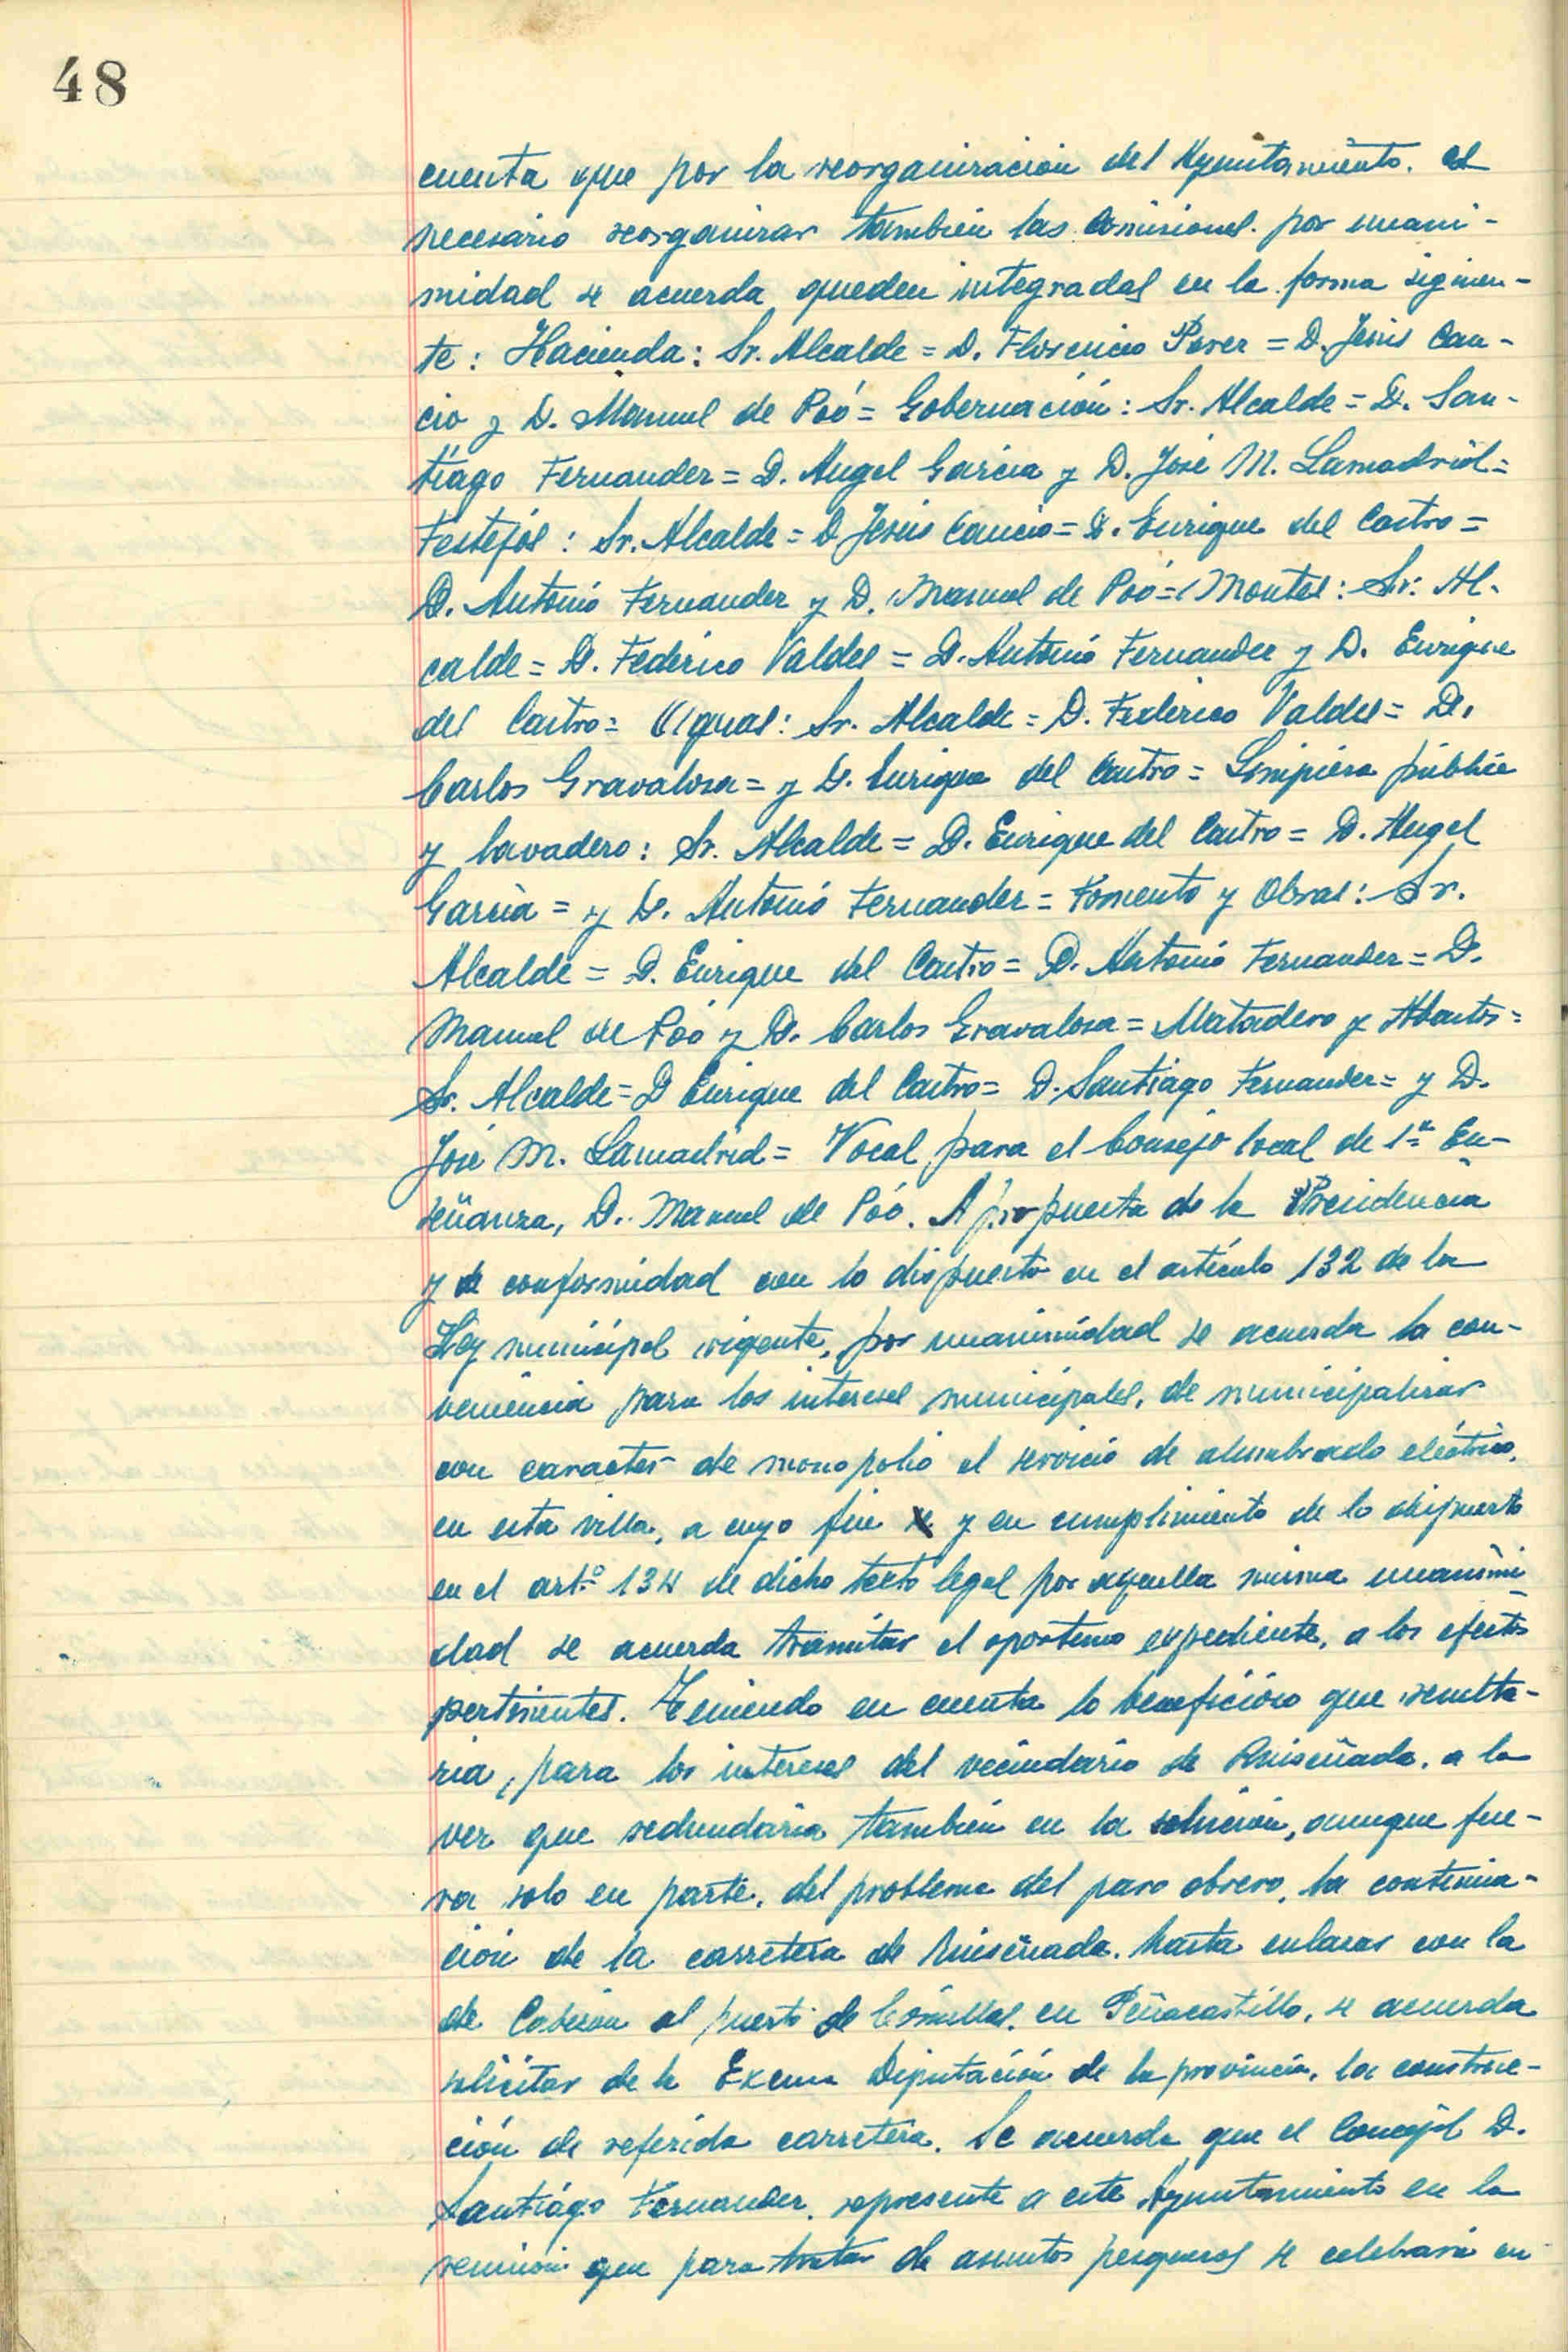 48
cuenta que por la reorganización del Ayuntamiento. es
necesario reorganizar también las Comisiones. por unani-
midad se acuerda queden integradas en la forma siguien-
te: Hacienda: Sr. Alcalde = D. Florencio Perez = D. Jesús Can-
cio y D. Manuel de Poó = Gobernación: Sr. Alcalde = D. San-
tiago Fernandez = D. Angel García y D. José M. Lamadrid =
Festejos: Sr. Alcalde = D Jesús Cancio = D. Enrique del Castro =
D. Antonio Fernandez y D. Manuel de Poó = Montes: Sr. Al-
calde = D. Federico Valdes = D. Antonio Fernandez y D. Enrique
del Castro = Aguas: Sr. Alcalde = D. Federico Valdes = D.
Carlos Gravalosa = y D. Enrique del Castro = Limpieza pública
y lavadero: Sr. Alcalde = D. Enrique del Castro = D. Angel
García = y D. Antonio Fernandez = Fomento y Obras: Sr.
Alcalde = D. Enrique del Castro = D. Antonio Fernandez = D.
Manuel de Poó y D. Carlos Gravalosa = Matadero y Abastos =
Sr. Alcalde = D Enrique del Castro = D. Santiago Fernandez = y D.
José M. Lamadrid = Vocal para el Consejo local de 1ª En-
señanza, D. Manuel de Póo. A propuesta de la Presidencia
y de conformidad con lo dispuesto en el artículo 132 de la
Ley municipal vigente, por unanimidad se acuerda la con-
veniencia para los intereses municipales, de municipalizar
con caracter de monopolio el servicio de alumbrado eléctrico,
en esta villa, a cuyo fin y en cumplimiento de lo dispuesto
en el artº 134 de dicho texto legal por aquella misma unanimi-
dad se acuerda tramitar el oportuno expediente, a los efectos
pertinentes. Teniendo en cuenta lo beneficioso que resulta-
ria, para los intereses del vecindario de Ruiseñada, a la
vez que redundaria también en la solución, aunque fue-
ra solo en parte, del problema del paro obrero, la continua-
ción de la carretera de Ruiseñada. hasta enlazar con la
de Cabezón al puerto de Comillas, en Peñacastillo, se acuerda
solicitar de la Excma Diputación de la provincia, la construc-
ción de referida carretera. Se acuerda que el Concejal D.
Santiago Fernandez, represente a este Ayuntamiento en la
reunión que para tratar de asuntos pesqueros se celebrará en